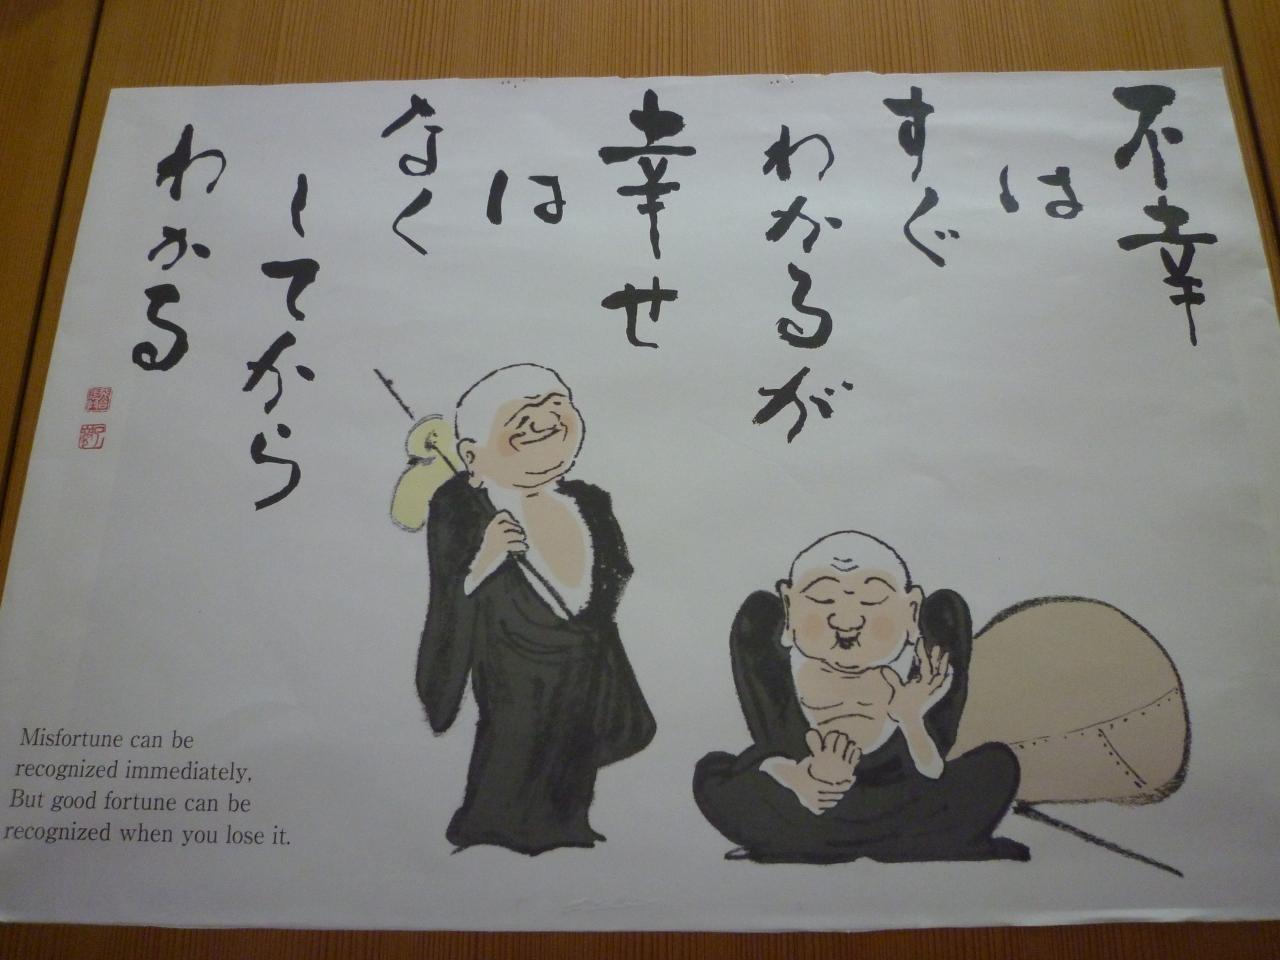 不幸
は
すぐ
わかるが
幸せ
は
なく
してから
わかる
Misfortune can be
recognized immediately,
But good fortune can be
recognized when you lose it.